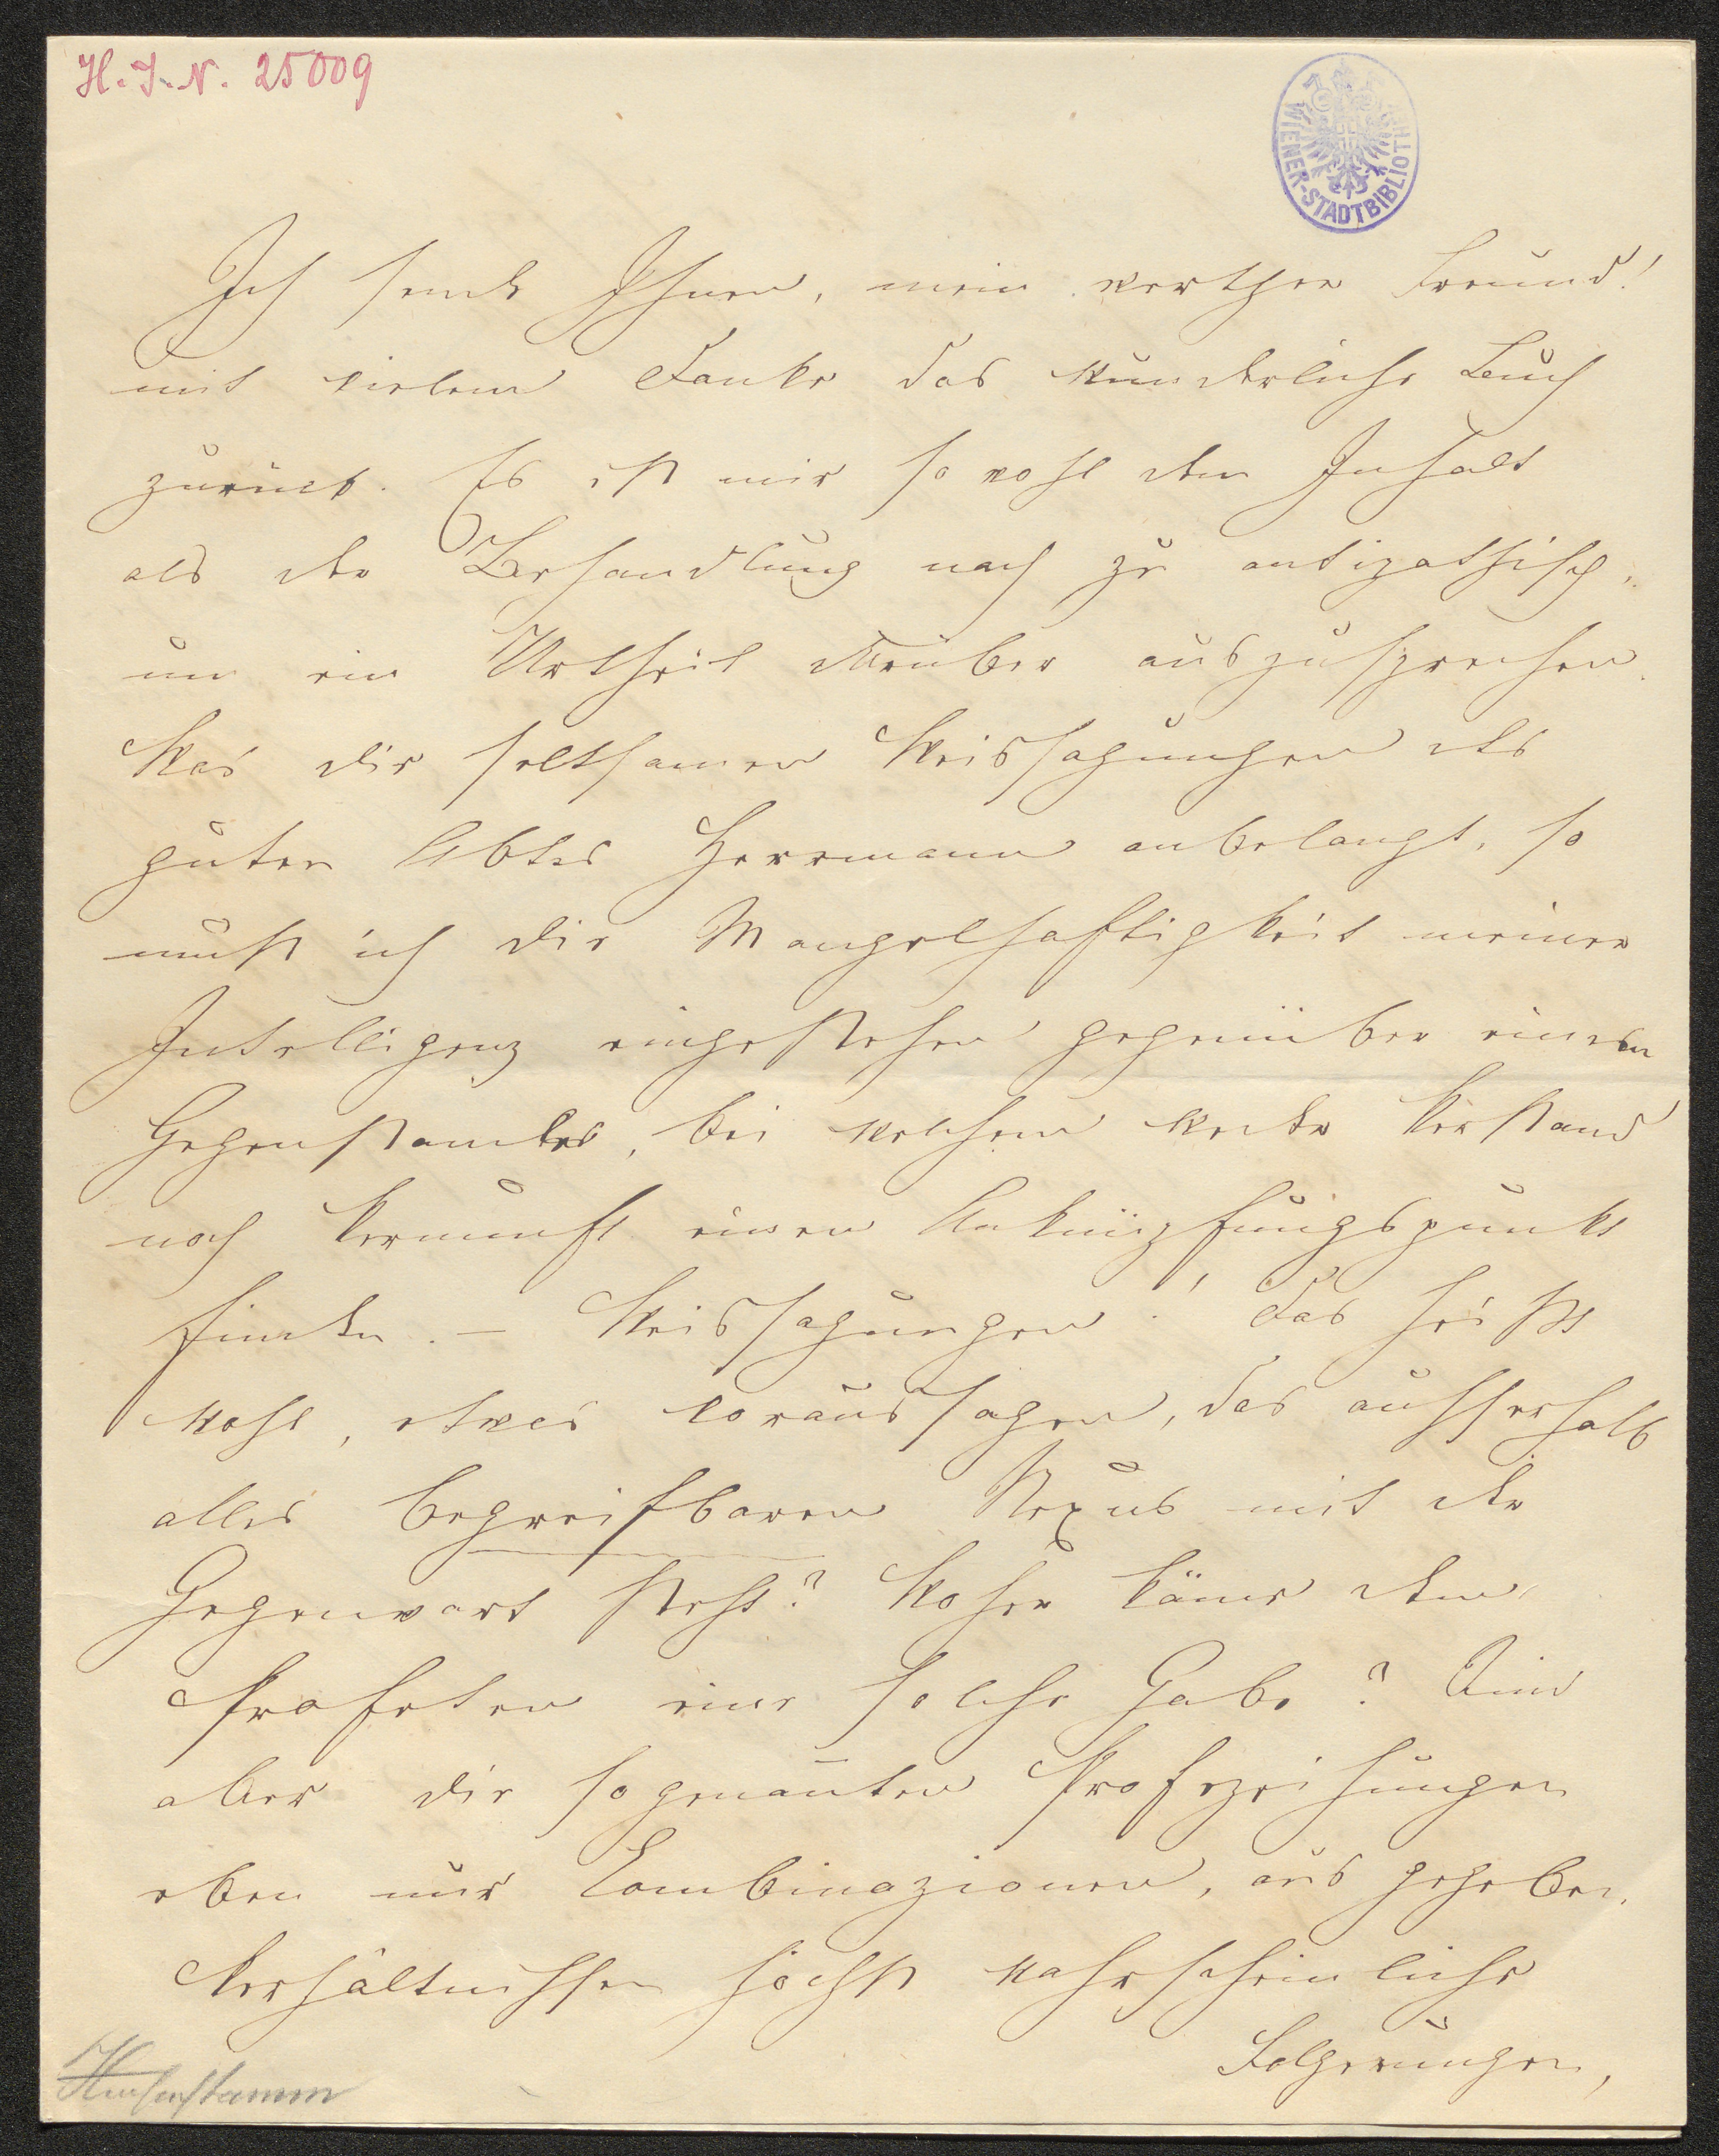 H. I. N. 25009
WIENER-STADTBIBLIOTHEK
Ich sende Ihnen, mein werther Freund!
mit vielem Danke das wunderliche Buch
zurück. Es ist mir so wohl dem Inhalt
als der Behandlung nach zu antipathisch,
um ein Urtheil darüber auszusprechen.
Was die seltsamen Weissagungen des
guten Abtes Herrmann anbelangt, so
muß ich die Mangelhaftigkeit meiner
Intelligenz eingestehen gegenüber eines
Gegenstandes, bei welchem weder Verstand
noch Vernunft einen Anknüpfungspunkt
finden. – Weissagungen! Das heißt
wohl, etwas voraussagen, das ausserhalb
alles begreifbaren Nexus mit der
Gegenwart steht? Woher käme dem
Profeten eine solche Gabe? Sind
aber die sogenan̄ten Profezeihungen
eben nur Combinazionen, aus gegeben.
Verhältnissen höchst wahrscheinliche
Folgerungen,